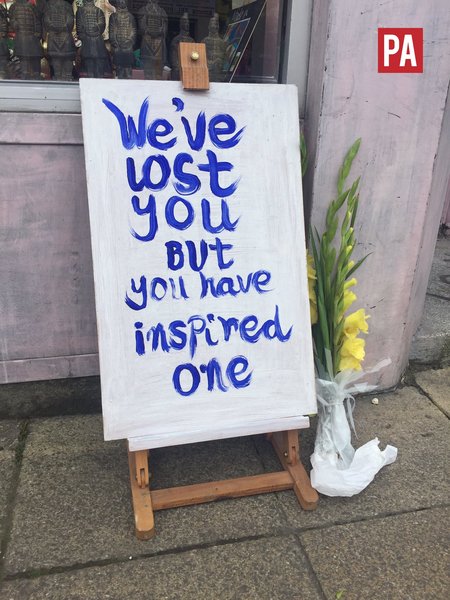 PA
We've
lost
you
BUt
you have
inspired
one